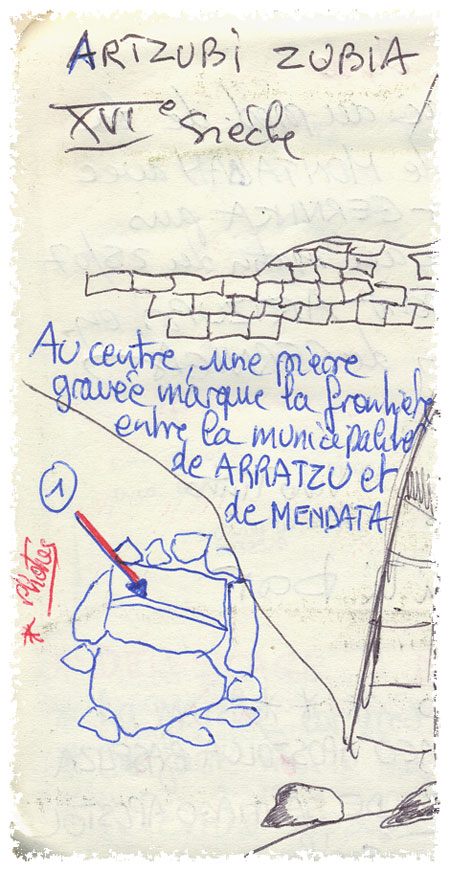 ARTZUBI ZUBIA
XVIe Siècle
Au centre, une pierre
gravée marque la frontière
entre la municipalité
de ARRATZU et
de MENDATA
1
* Photos